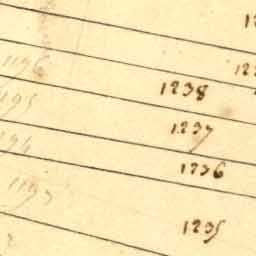 1196
1238
1195
1237
1194
1236
1193
1235